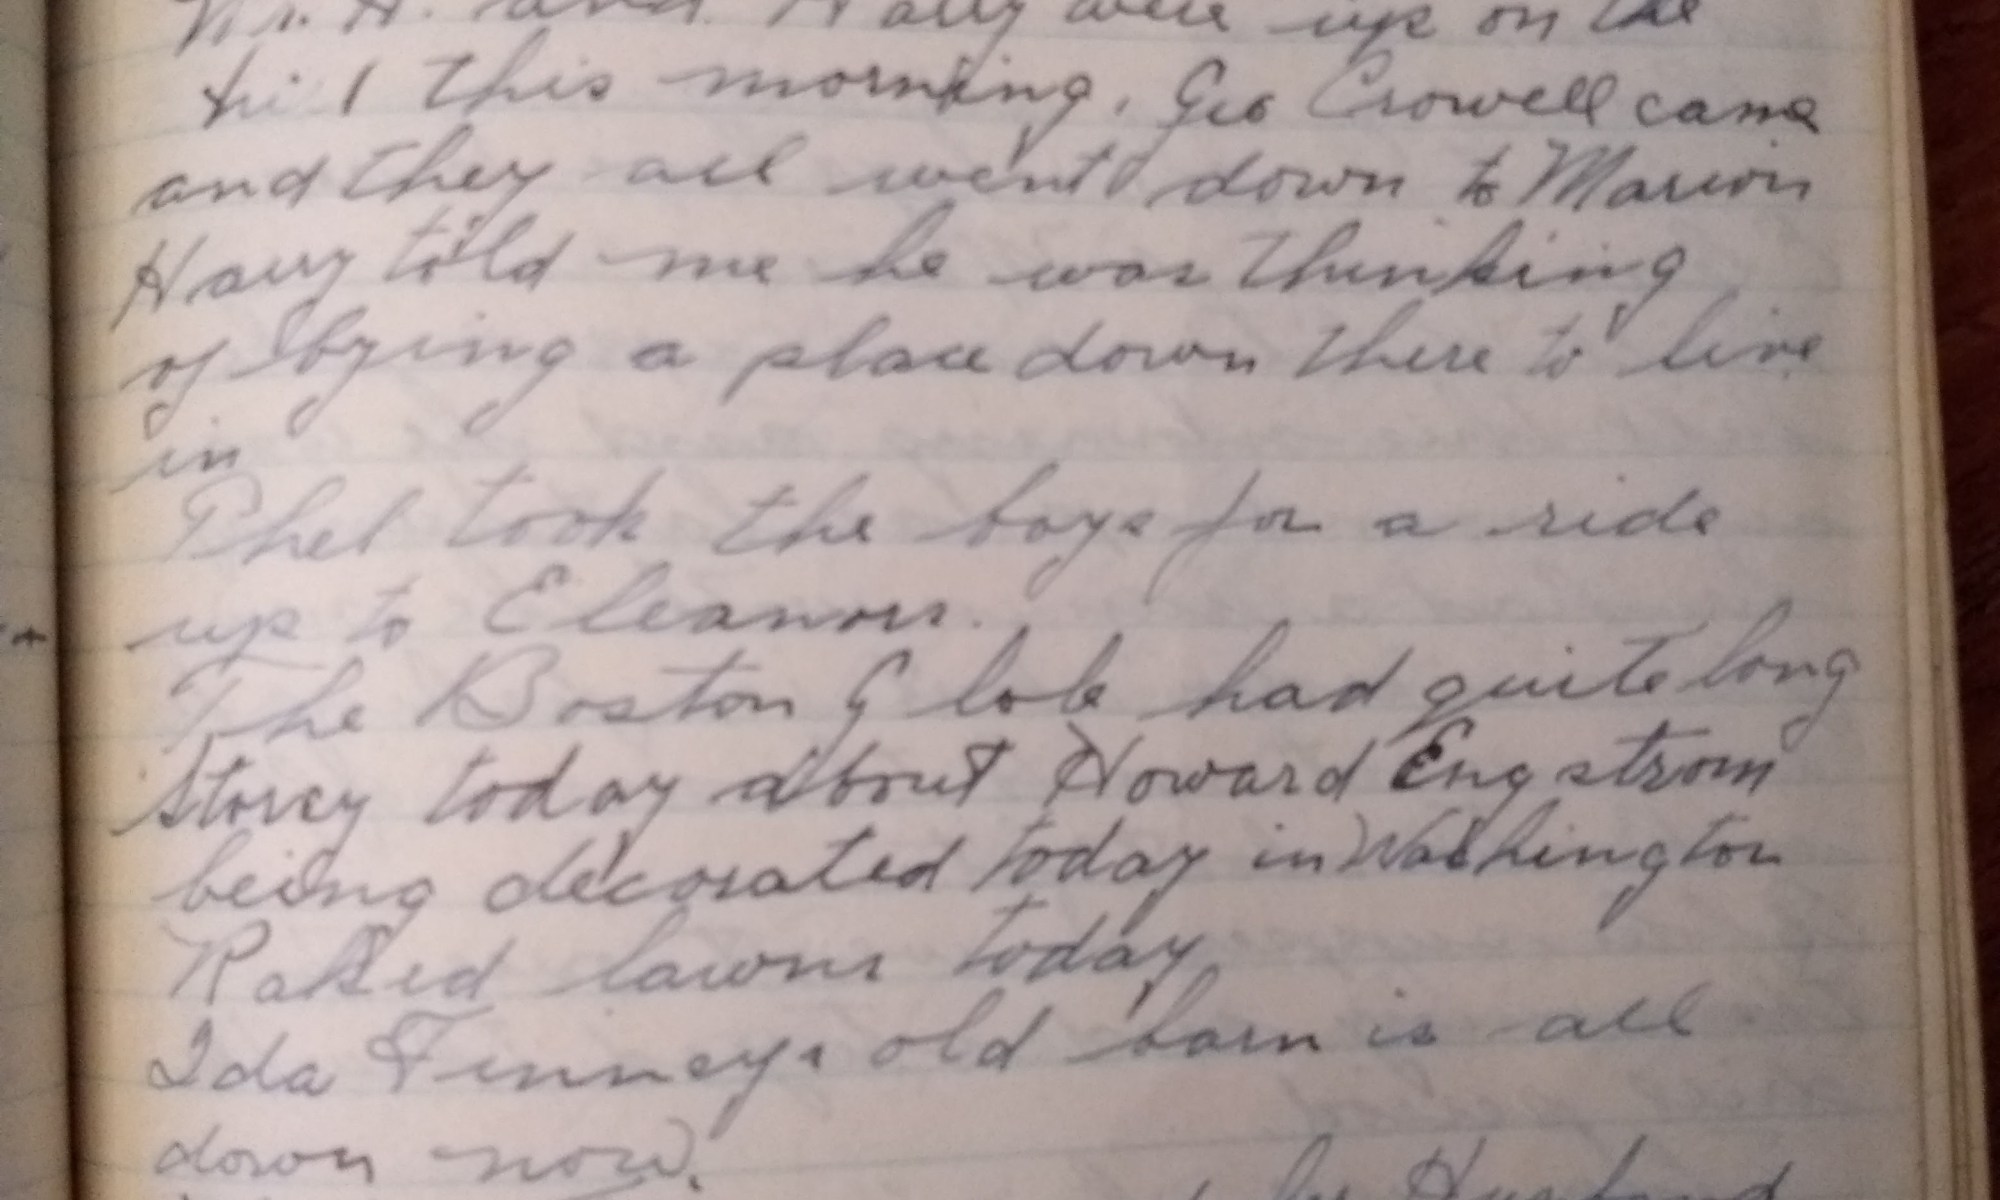 and Harry were up on the
hill this morning. Geo Crowell came
and they all went down to Marion
Harry told me he was thinking
of bying a place down there to live
in
Phel took the boys for a ride
up to Eleanors.
The Boston Globe had quite long
Storey today about Howard Engstrom
being decorated today in Washington
Raked lawns today
Ida Finneys old barn is all
down now.
Husband